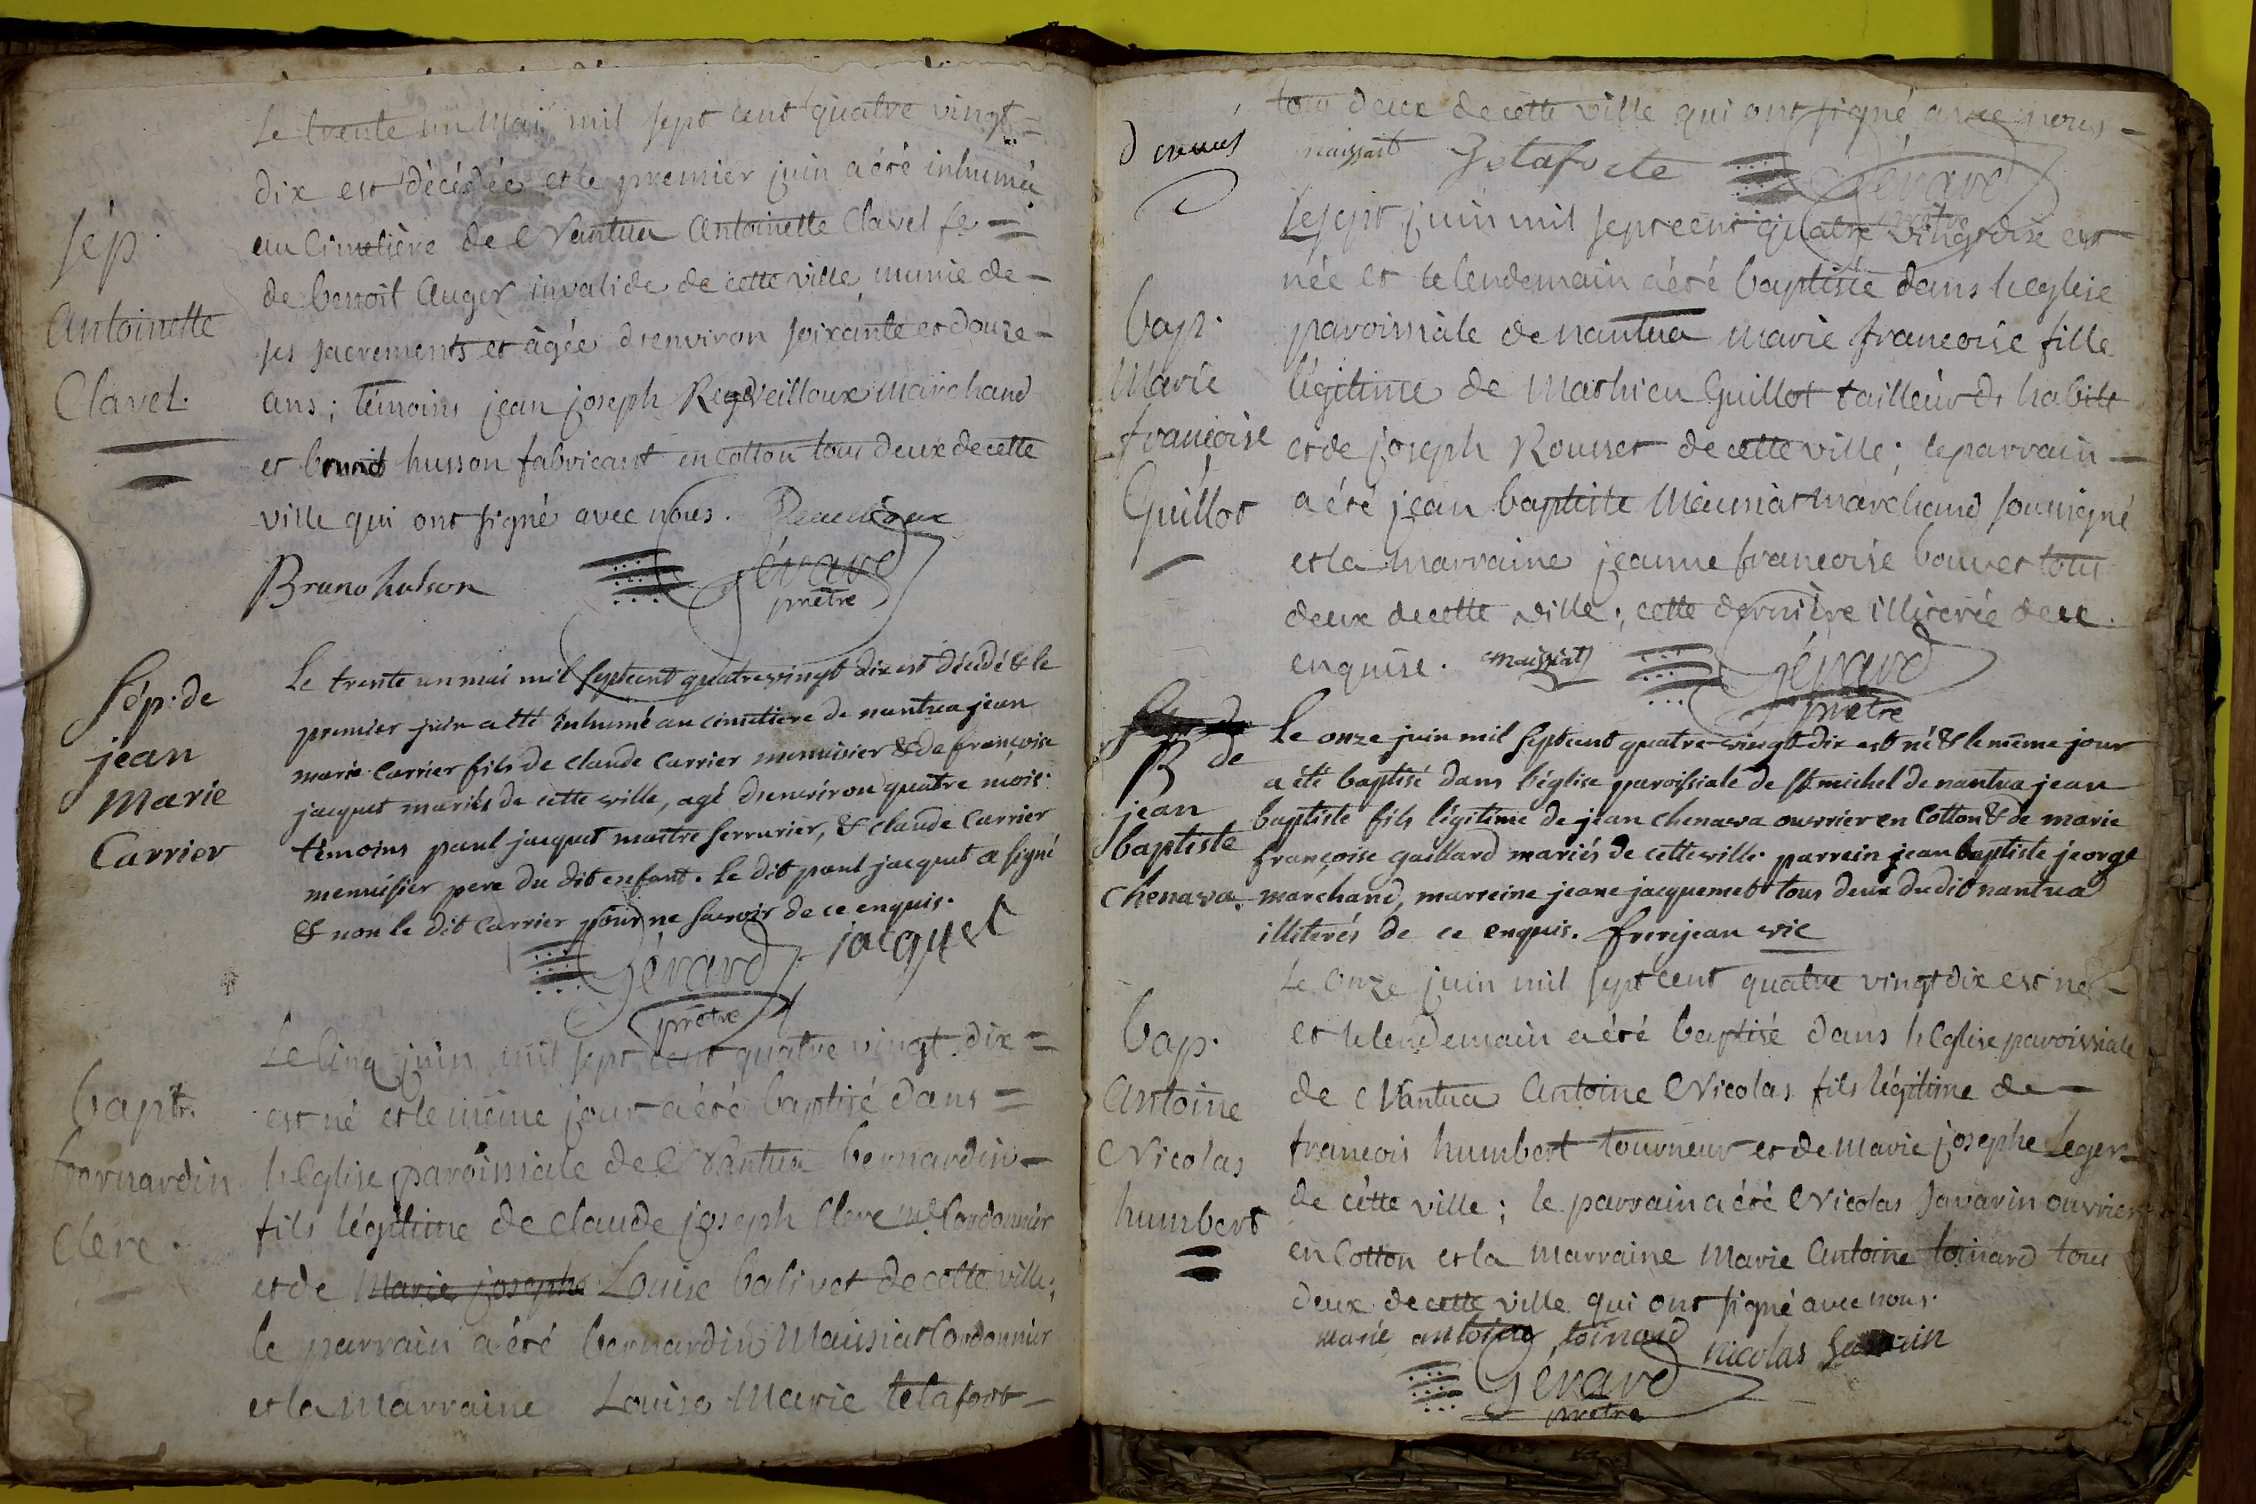 Sép.
Antoinette
Clavel.
Le trente un Mai mil sept cent quatre vingt =
dix est décédée et le premier juin a été inhumée
au Cimetière de Nantua Antoinette Clavel fe =
de benoit Auger invalide de cette ville munie de -
ses sacrements et âgée d'environ soixante et douze -
ans ; témoins jean joseph Reydeilloux Marchand
et bruno husson fabricant en Cotton tous deux de cette
ville qui ont signé avec nous.
Bruno huhson
Gérard
prêtre
Sép. de
jean
Marie
Carrier
Le trente un mai mil septcent quatrevingt dix est décédé & le
premier juin a été inhumé au cimetiere de nantua jean
marie carrier fils de claude carrier menuisier & de françoise
jacquet mariés de cette ville, agé d'environ quatre mois.
témoins paul jacquet maitre serrurier, & claude carrier
menuisier pere du dit enfant. le dit paul jacquet a signé
& non le dit carrier pour ne savoir de ce enquis.
Gérard jacquet
prêtre
bapt.
bernardin
Clerc.
Le Cinq juin mil sept cent quatre vingt dix =
est né et le même jour a été baptisé dans =
l'Eglise paroissiale de Nantua bernardin -
fils légitime de claude joseph Clerc md Cordonnier
et de Marie josephe Louise balivet de cette ville ;
le parrain a été bernardin Maissiat Cordonnier
et la Marraine Louise Marie telafort -
tous deux de cette ville qui ont signé avec nous -
maissiat Gérard
prêtre
bap.
Marie
françoise
Guillot
Le sept juin mil sept cent quatre vingt dix est
née et le lendemain a été baptisée dans l'eglise
paroissiale de nantua Marie françoise fille
légitime de Mathieu Guillot tailleur d'habits
et de joseph Rousset de cette ville ; le parrain -
a été jean baptiste Maissiat marchand soussigné
et la marraine jeanne françoise bouvet tous
deux de cette ville ; cette dernière illiterée de ce
enquise. maissiat Gérard
prêtre
B de
jean
baptiste
chenava.
Le onze juin mil septcent quatre-vingt-dix est né & le même jour
a été baptisé dans l'église paroissiale de st michel de nantua jean
baptiste fils légitime de jean chenava ouvrier en Cotton & de marie
françoise gaillard mariés de cette ville. parrein jean baptiste jeorge
marchand, marreine jeane jacquemet tous deux du dit nantua
illiterés de ce enquis. frerejean vic
bap.
Antoine
Nicolas
humbert
Le Onze juin mil sept cent quatre vingt dix est né -
et le lendemain a été baptisé dans l'Eglise paroissiale
de Nantua Antoine Nicolas fils légitime de -
françois humbert tourneur et de Marie josephe Leger -
de cette ville ; le parrain a été Nicolas Savarin ouvrier
en Cotton et la Marraine Marie Antoine toinard tous
deux de cette ville qui ont signé avec nous.
marie antoine toinard nicolas
Gérard
prêtre